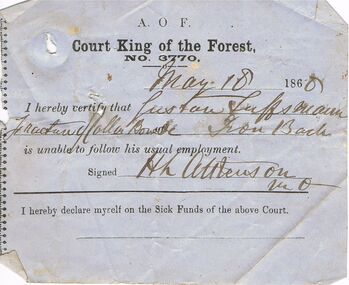 A. O. F.
Court King of the Forest,
NO. 3770.
May 18 1868
I hereby certify that Gustav
is unable to follow his usual employment.
Signed H L Atkenson
M O
I hereby declare myself on the Sick Funds of the above Court.